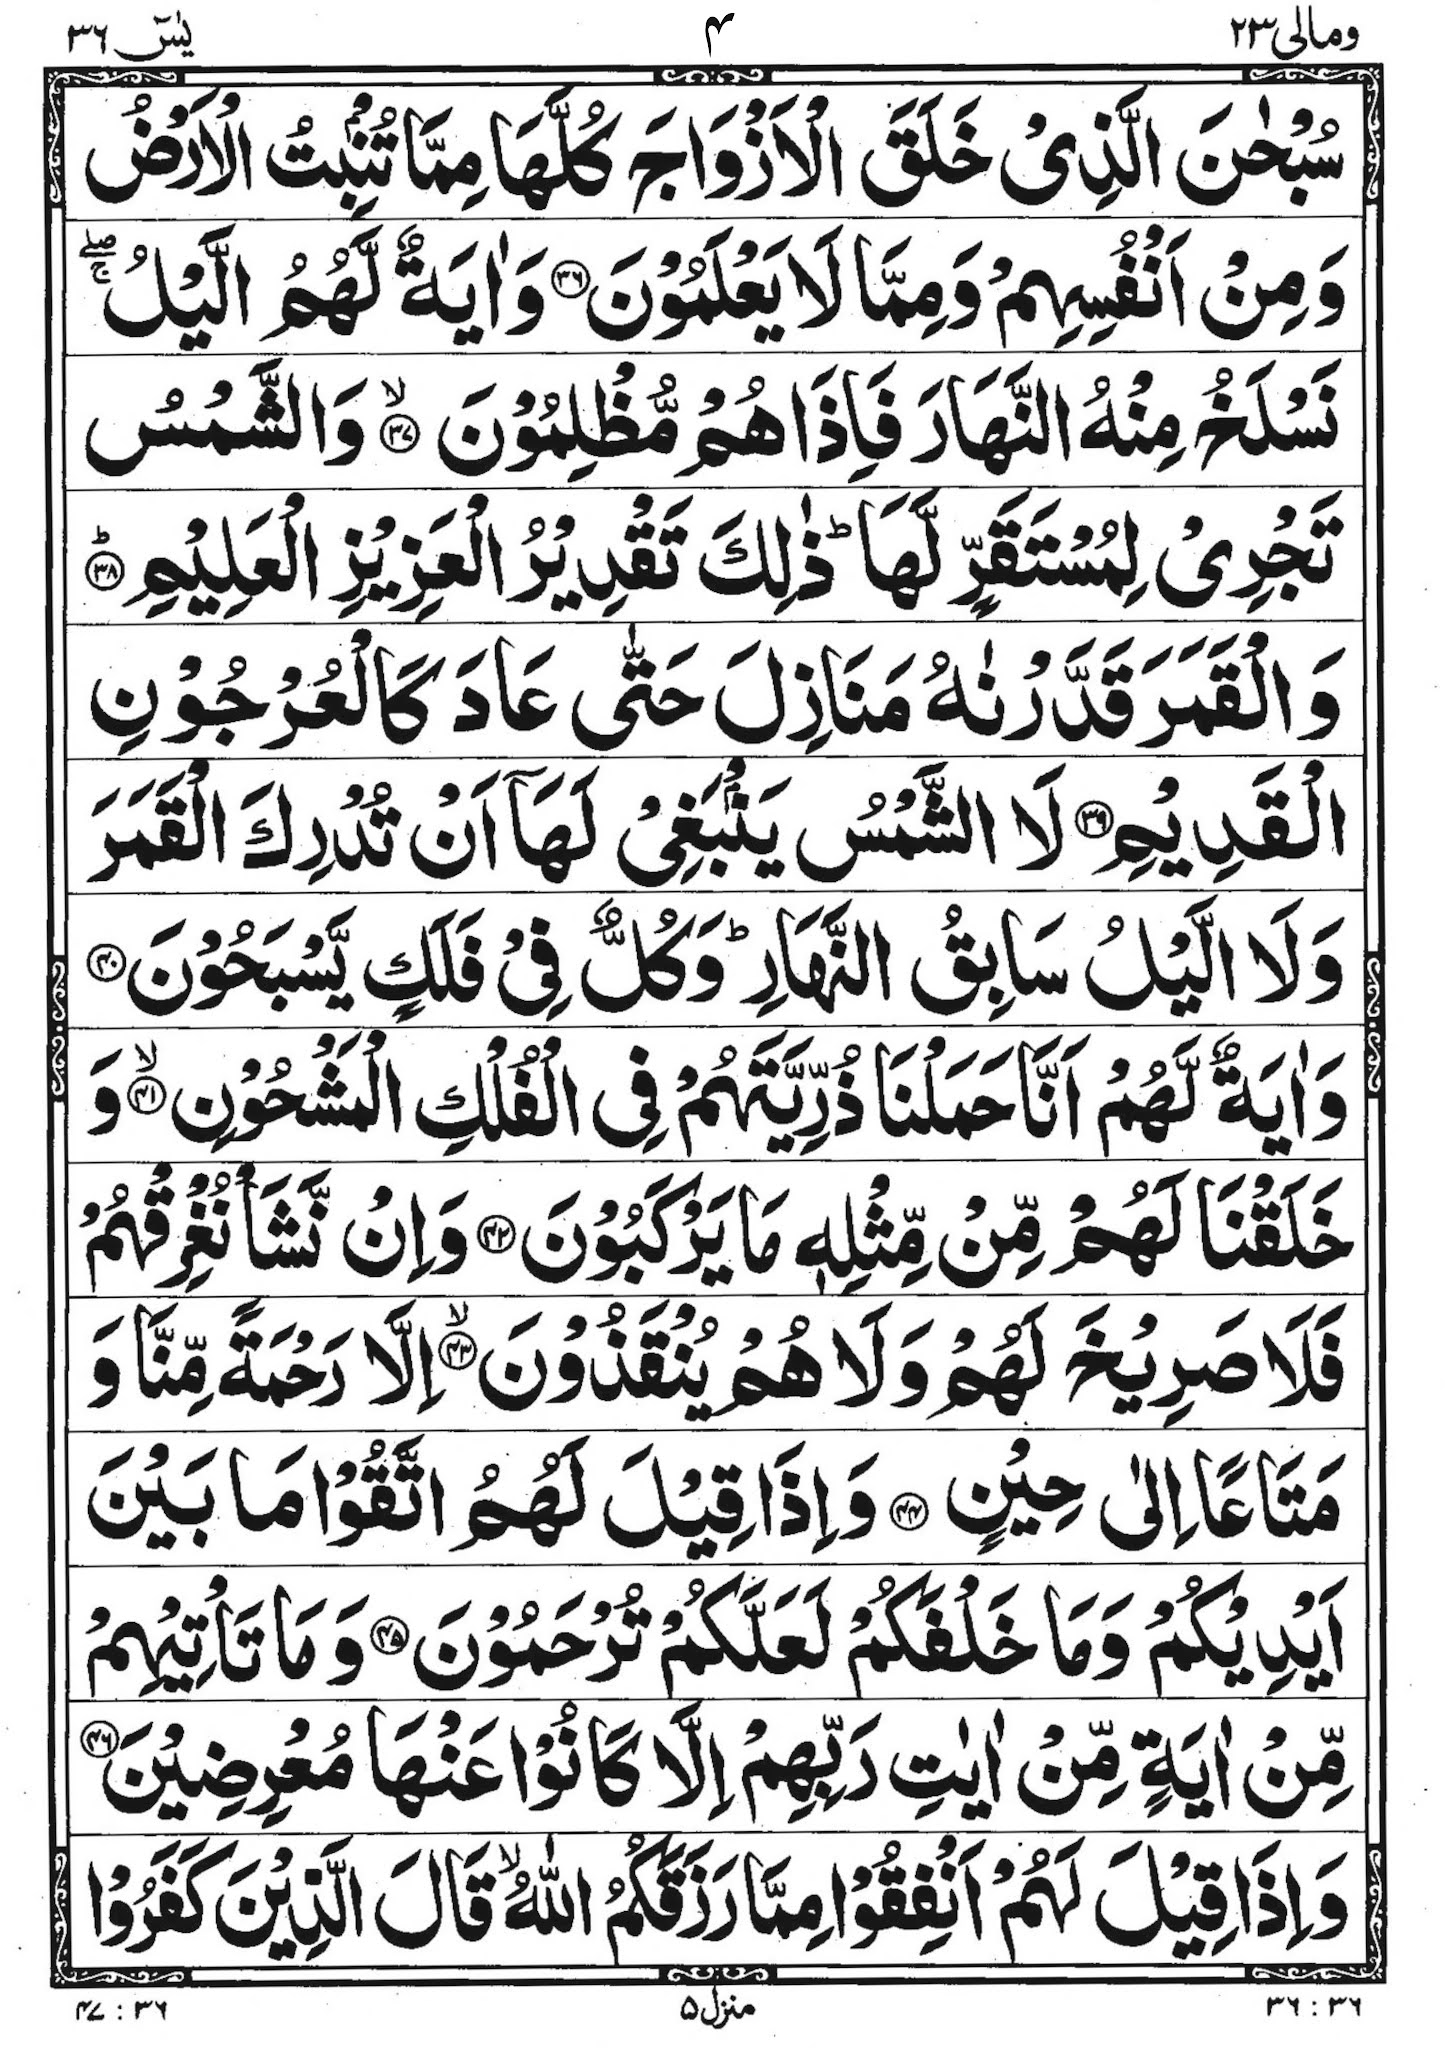 ومالی ۲۳ ۴ یٰسٓ ۳۶
سُبْحٰنَ الَّذِیْ خَلَقَ الْاَزْوَاجَ كُلَّهَا مِمَّا تُنْۢبِتُ الْاَرْضُ
وَمِنْ اَنْفُسِهِمْ وَمِمَّا لَا یَعْلَمُوْنَ ﴿۳۶﴾ وَاٰیَةٌ لَّهُمُ الَّیْلُ ۖۚ
نَسْلَخُ مِنْهُ النَّهَارَ فَاِذَا هُمْ مُّظْلِمُوْنَ ﴿ۙ۳۷﴾ وَالشَّمْسُ
تَجْرِیْ لِمُسْتَقَرٍّ لَّهَا ؕ ذٰلِكَ تَقْدِیْرُ الْعَزِیْزِ الْعَلِیْمِ ﴿ؕ۳۸﴾
وَالْقَمَرَ قَدَّرْنٰهُ مَنَازِلَ حَتّٰی عَادَ كَالْعُرْجُوْنِ
الْقَدِیْمِ ﴿۳۹﴾ لَا الشَّمْسُ یَنْۢبَغِیْ لَهَاۤ اَنْ تُدْرِكَ الْقَمَرَ
وَلَا الَّیْلُ سَابِقُ النَّهَارِ ؕ وَكُلٌّ فِیْ فَلَكٍ یَّسْبَحُوْنَ ﴿۴۰﴾
وَاٰیَةٌ لَّهُمْ اَنَّا حَمَلْنَا ذُرِّیَّتَهُمْ فِی الْفُلْكِ الْمَشْحُوْنِ ﴿ۙ۴۱﴾ وَ
خَلَقْنَا لَهُمْ مِّنْ مِّثْلِهٖ مَا یَرْكَبُوْنَ ﴿۴۲﴾ وَاِنْ نَّشَاْ نُغْرِقْهُمْ
فَلَا صَرِیْخَ لَهُمْ وَلَا هُمْ یُنْقَذُوْنَ ﴿ۙ۴۳﴾ اِلَّا رَحْمَةً مِّنَّا وَ
مَتَاعًا اِلٰی حِیْنٍ ﴿۴۴﴾ وَاِذَا قِیْلَ لَهُمُ اتَّقُوْا مَا بَیْنَ
اَیْدِیْكُمْ وَمَا خَلْفَكُمْ لَعَلَّكُمْ تُرْحَمُوْنَ ﴿۴۵﴾ وَمَا تَاْتِیْهِمْ
مِّنْ اٰیَةٍ مِّنْ اٰیٰتِ رَبِّهِمْ اِلَّا كَانُوْا عَنْهَا مُعْرِضِیْنَ ﴿۴۶﴾
وَاِذَا قِیْلَ لَهُمْ اَنْفِقُوْا مِمَّا رَزَقَكُمُ اللّٰهُ ۙ قَالَ الَّذِیْنَ كَفَرُوْا
۳۶ : ۳۶ منزل ۵ ۳۶ : ۴۷